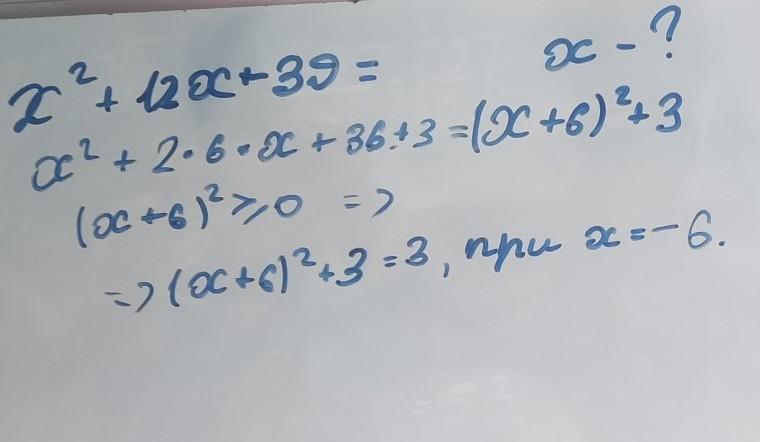 x² + 12x + 39 = x - ?
x² + 2·6·x + 36 + 3 = (x+6)² + 3
(x+6)² ⩾ 0 =>
=> (x+6)² + 3 = 3, при x = -6.